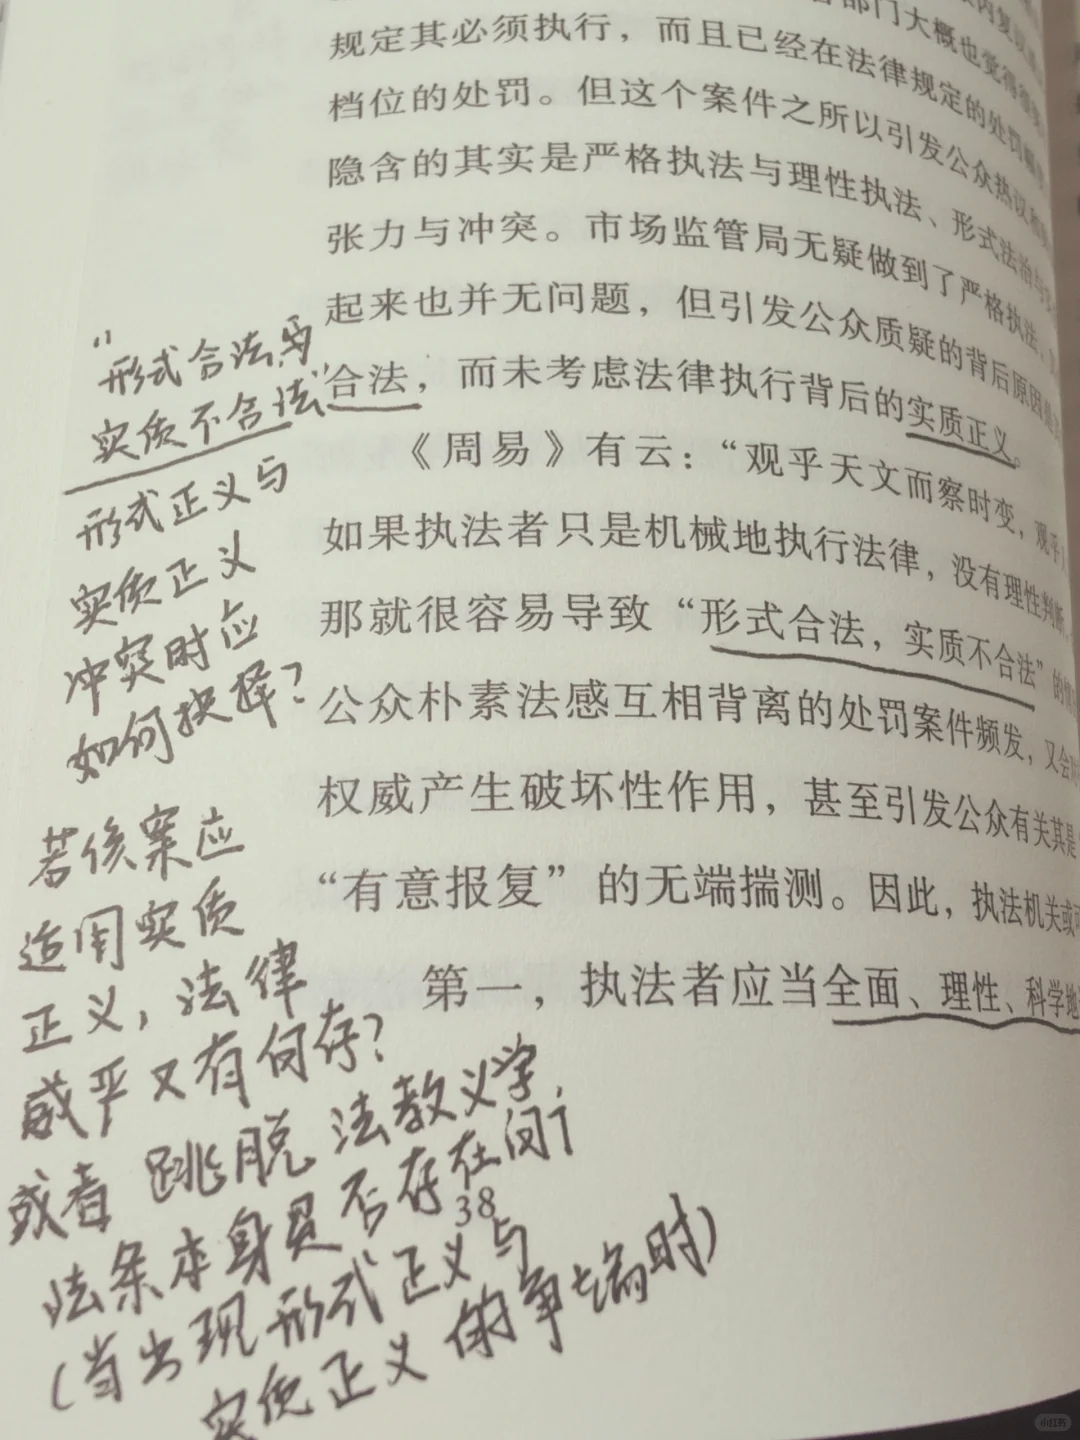 内复议
部门大概也觉得很
规定其必须执行，而且已经在法律规定的处罚幅
档位的处罚。但这个案件之所以引发公众热议和
隐含的其实是严格执法与理性执法、形式法治与
张力与冲突。市场监管局无疑做到了严格执法，
起来也并无问题，但引发公众质疑的背后原因
合法，而未考虑法律执行背后的实质正义。
《周易》有云：“观乎天文而察时变，观乎
如果执法者只是机械地执行法律，没有理性判断，
那就很容易导致“形式合法，实质不合法”的
公众朴素法感互相背离的处罚案件频发，又会对
权威产生破坏性作用，甚至引发公众有关其是
“有意报复”的无端揣测。因此，执法机关或
第一，执法者应当全面、理性、科学地
38
“形式合法与
实质不合法”
形式正义与
实质正义
冲突时应
如何抉择？
若该案应
适用实质
正义，法律
威严又有何存？
或者跳脱法教义学，
法条本身是否存在问
（当出现形式正义与
实质正义的争端时）
小红书